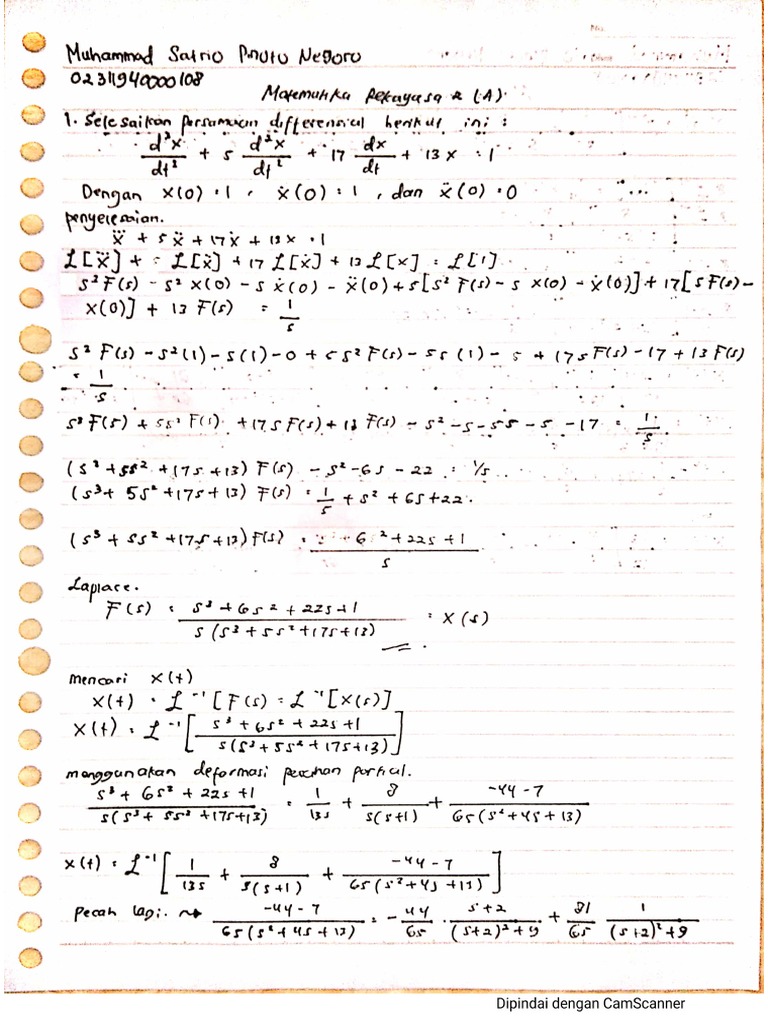 Muhammad Satrio Pinuto Negoro
02311940000108
Matematika Rekayasa 2 (A)
1. Selesaikan persamaan differensial berikut ini :
d³x/dt² + 5 d²x/dt² + 17 dx/dt + 13x = 1
Dengan x(0) = 1 , ẋ(0) = 1 , dan ẍ(0) = 0
penyelesaian.
ẍ + 5ẍ + 17ẋ + 13x = 1
ℒ[ẍ] + = ℒ[ẋ] + 17 ℒ[ẋ] + 13 ℒ[x] = ℒ[1]
s² F(s) - s² x(0) - s ẋ(0) - ẍ(0) + 5[s² F(s) - s x(0) - ẋ(0)] + 17[s F(s) -
x(0)] + 13 F(s) = 1/s
s² F(s) - s²(1) - s(1) - 0 + 5s² F(s) - 5s(1) - 5 + 17s F(s) - 17 + 13 F(s)
= 1/s
s³ F(s) + 5s² F(s) + 17s F(s) + 13 F(s) - s² - s - 5s - 5 - 17 = 1/s
(s³ + 5s² + 17s + 13) F(s) - s² - 6s - 22 = 1/s
(s³ + 5s² + 17s + 13) F(s) = 1/s + s² + 6s + 22
(s³ + 5s² + 17s + 13) F(s) = 6² + 22s + 1 / s
Laplace.
F(s) = s³ + 6s² + 22s + 1 / s(s³ + 5s² + 17s + 13) = X(s)
mencari x(t)
x(t) = ℒ⁻¹[F(s) = ℒ⁻¹[X(s)]
x(t) = ℒ⁻¹[s³ + 6s² + 22s + 1 / s(s³ + 5s² + 17s + 13)]
menggunakan deformasi pecahan partial.
s³ + 6s² + 22s + 1 / s(s³ + 5s² + 17s + 13) = 1/13s + 8/5(s+1) + -44-7 / 65(s² + 4s + 13)
x(t) = ℒ⁻¹[1/13s + 8/5(s+1) + -44-7 / 65(s² + 4s + 13)]
pecah lagi. → -44-7 / 65(s² + 4s + 13) = -44/65 · s+2 / (s+2)² + 9 + 81/65 1/(s+2)² + 9
Dipindai dengan CamScanner